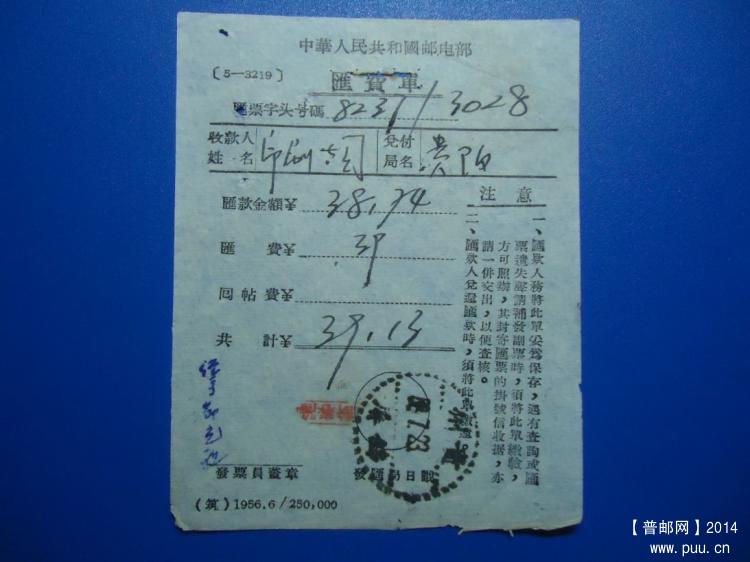 中華人民共和國邮电部
〔5—3219〕
匯費單
匯票字头号碼 8231/3028
收款人姓名 印刷
兌付局名 贵阳
匯款金額 38.74
匯費 39
回帖費
共計 39.13
注意
一、匯款人務將此單妥爲保存，遇有查詢或匯
票遺失應請補發副票時，須將此單繳驗，
方可照辦，其封寄匯票的掛號信收据，亦
請一併交出，以便查核。
二、匯款人兌還匯款時，須將此單繳還。
發票員蓋章
發匯局日戳
(筑) 1956.6/250,000
【普邮网】2014
www.puu.cn